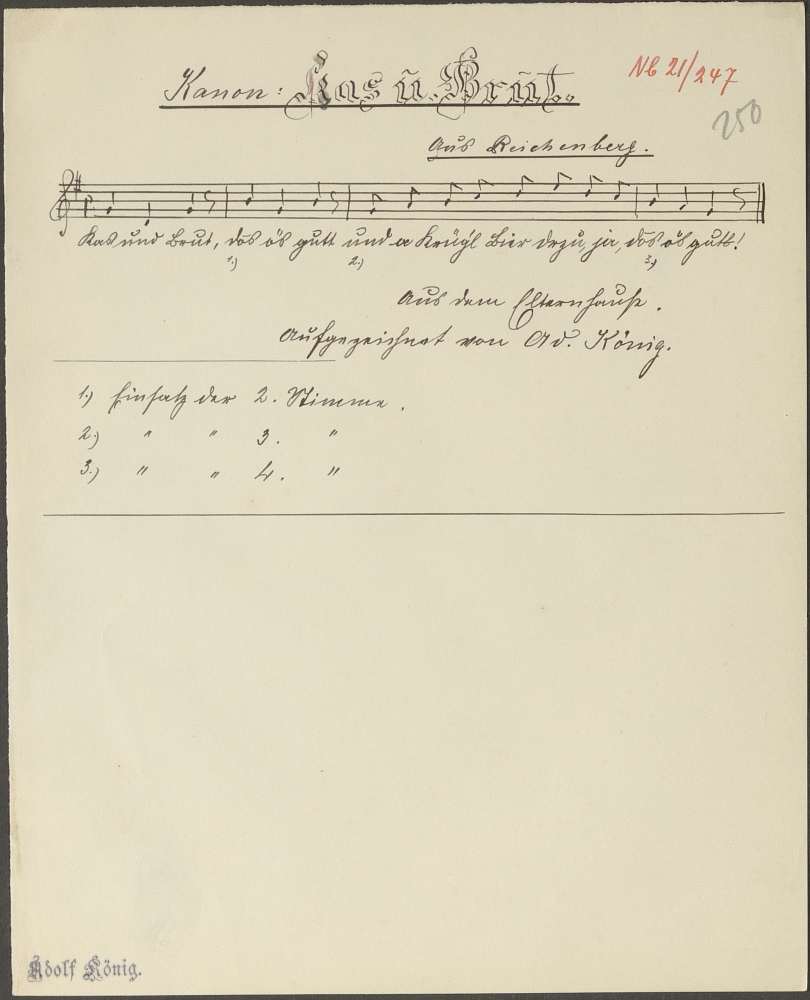 Kanon: Kas u. Brut.
Nb 21/247
250
Aus Reichenberg.
Kas und Brut, dos ös gutt und a Krügl Bier dezu, ja, dos ös gutt!
1.) 2.) 3.)
Aus dem Elternhause.
Aufgezeichnet von Ad. König.
1.) Einsatz der 2. Stimme.
2.) " " 3. "
3.) " " 4. "
Adolf König.